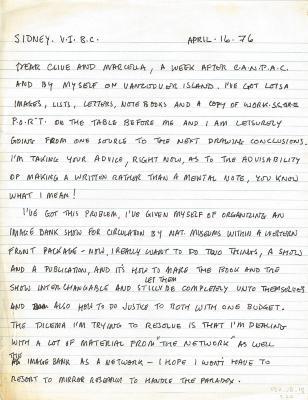 SIDNEY. V.I. B.C. APRIL-16-76
DEAR CLIVE AND MARCELLA, A WEEK AFTER C.A.N.P.A.C.
AND BY MYSELF ON VANCOUVER ISLAND. I'VE GOT LOTSA
IMAGES, LISTS, LETTERS, NOTE BOOKS AND A COPY OF WORK.SCORE
P.O.R.T. ON THE TABLE BEFORE ME AND I AM LEISURELY
GOING FROM ONE SOURCE TO THE NEXT DRAWING CONCLUSIONS.
I'M TAKING YOUR ADVICE, RIGHT NOW, AS TO THE ADVISABILITY
OF MAKING A WRITTEN RATHER THAN A MENTAL NOTE, YOU KNOW
WHAT I MEAN!
I'VE GOT THIS PROBLEM, I'VE GIVEN MYSELF OF ORGANIZING AN
IMAGE BANK SHOW FOR CIRCULATION BY NAT. MUSEUMS WITHIN A WESTERN
FRONT PACKAGE - NOW, I REALLY WANT TO DO TWO THINGS, A SHOW
AND A PUBLICATION, AND IT'S HOW TO MAKE THE BOOK AND THE
SHOW INTERCHANGABLE AND LET THEM STILL BE COMPLETELY UNTO THEMSELVES
AND ALSO HOW TO DO JUSTICE TO BOTH WITH ONE BUDGET.
THE DILEMA I'M TRYING TO RESOLVE IS THAT I'M DEALING
WITH A LOT OF MATERIAL FROM "THE NETWORK" AS WELL
AS THE IMAGE BANK AS A NETWORK - I HOPE I WON'T HAVE TO
RESORT TO MIRROR RESEARCH TO HANDLE THE PARADOX.